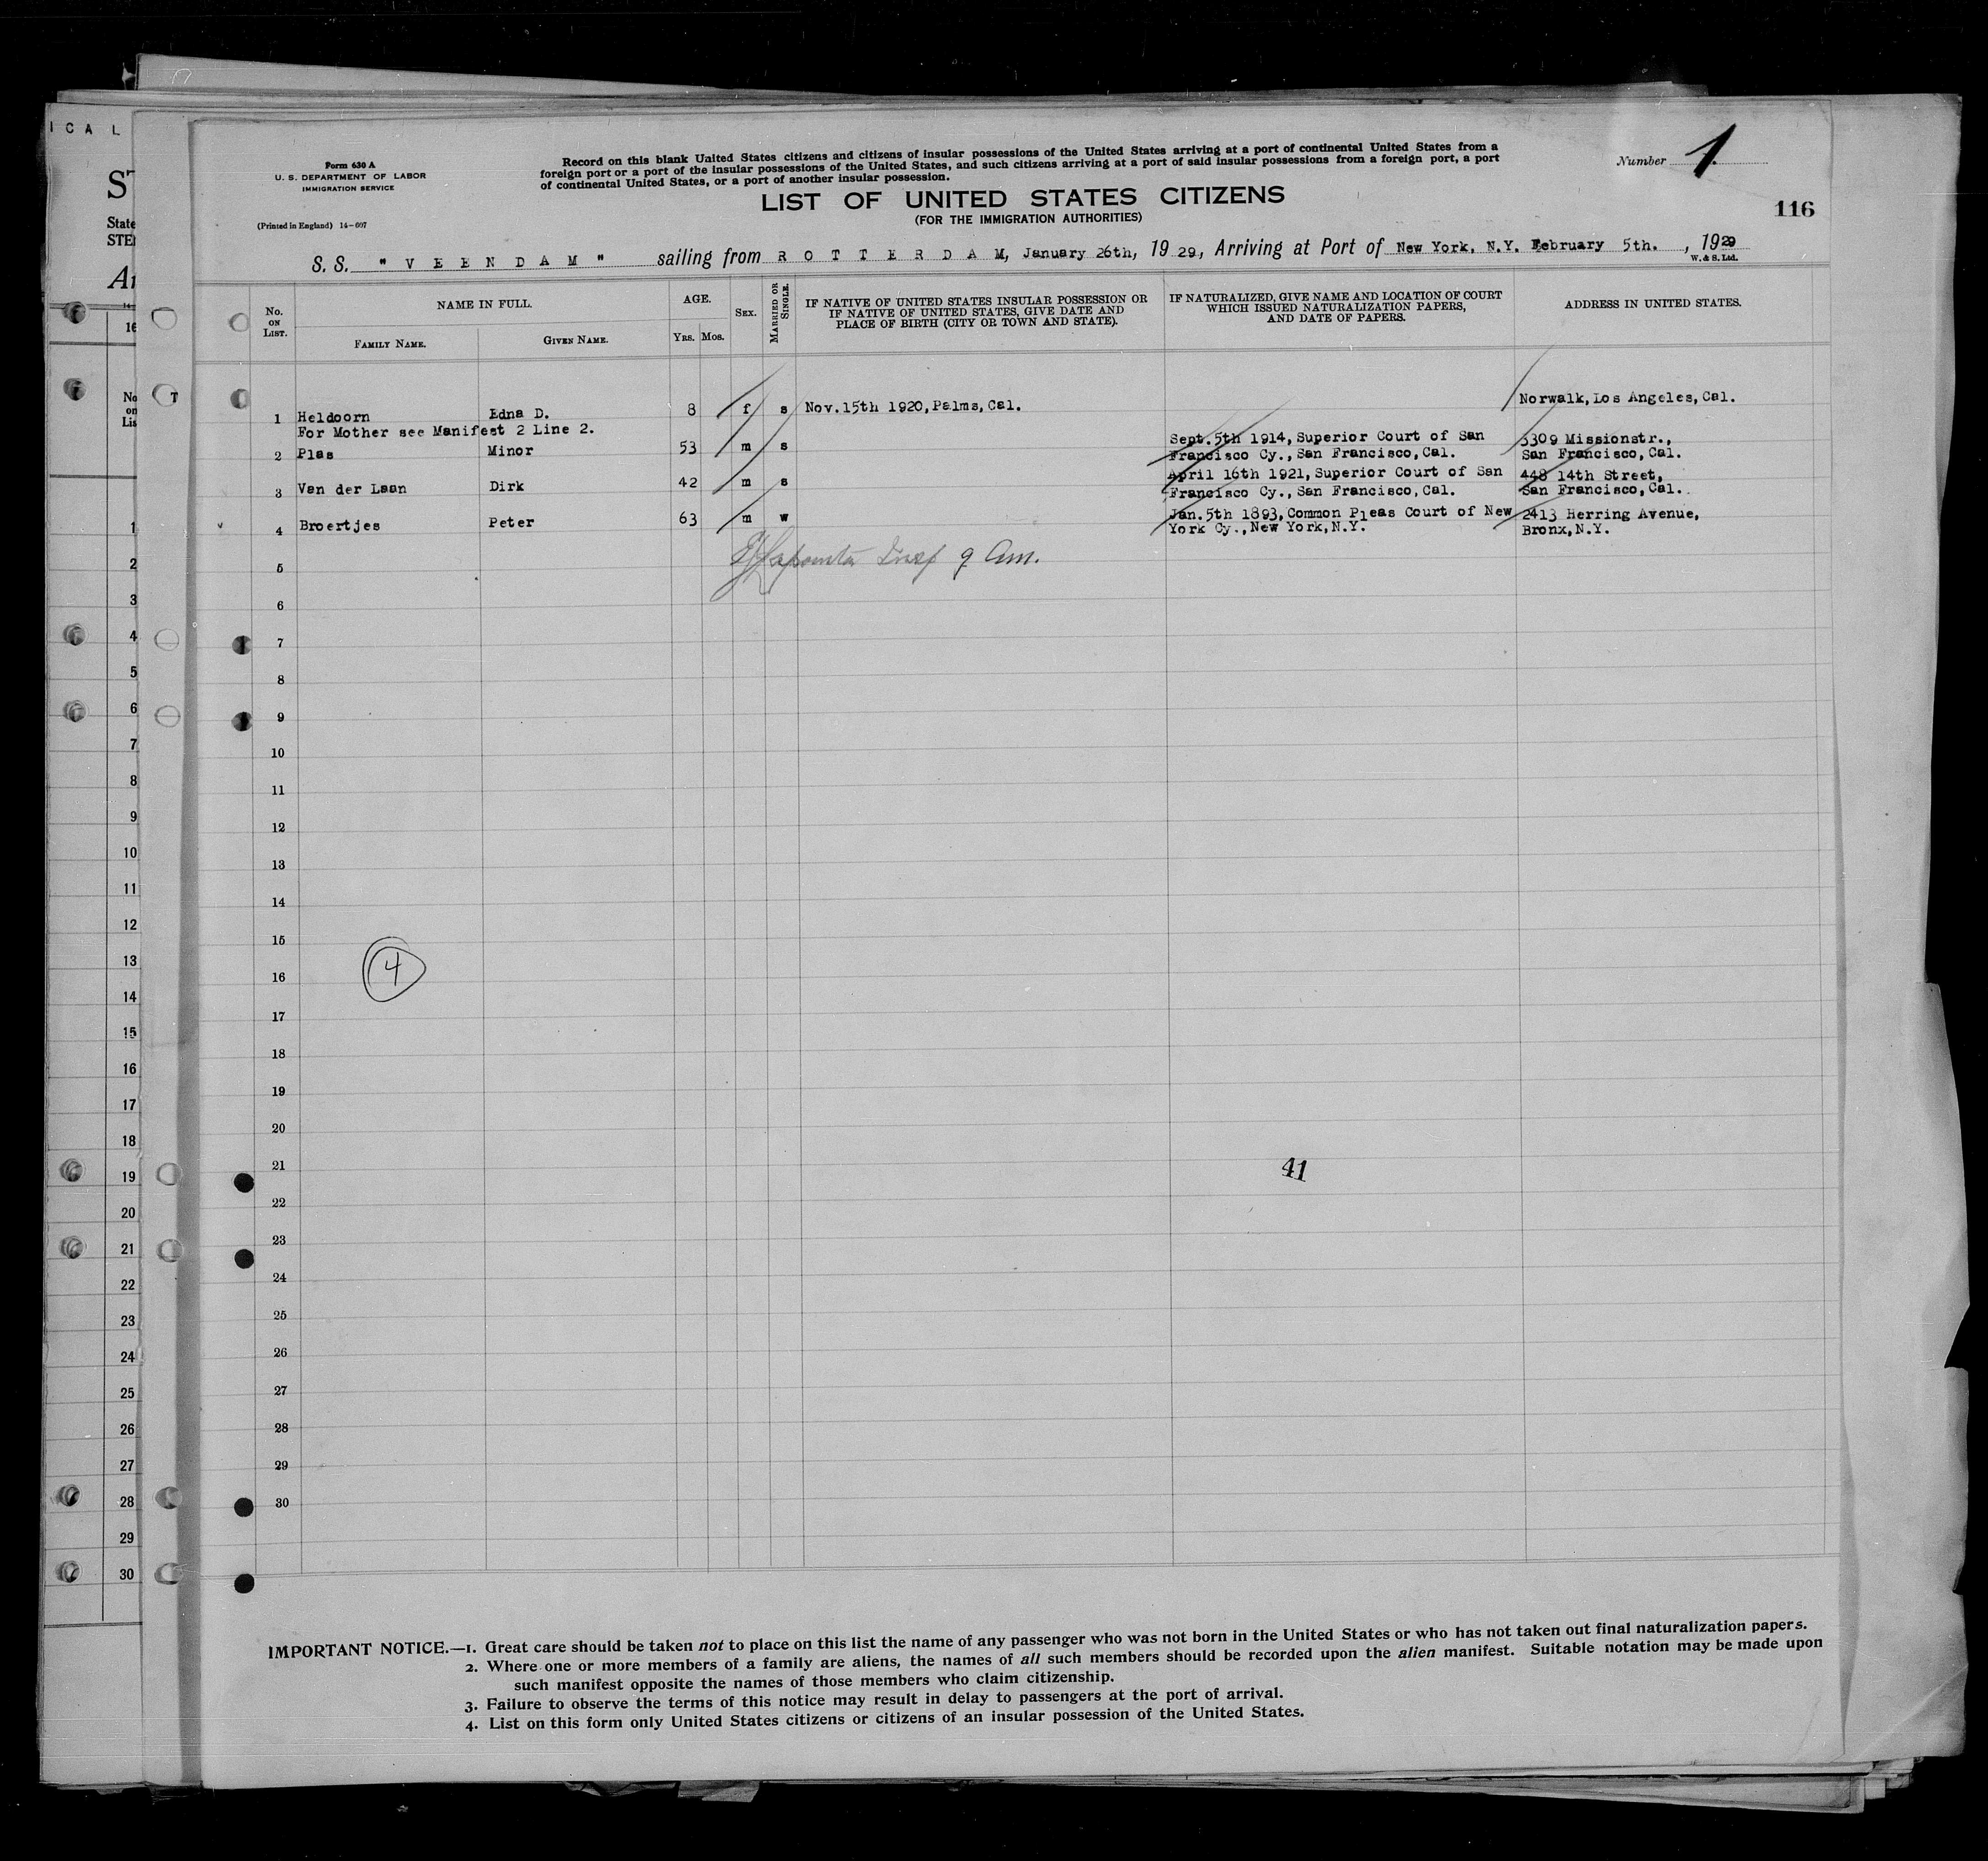 I C A L
ST
State
STE
Form 630 A
U. S. DEPARTMENT OF LABOR
IMMIGRATION SERVICE
(Printed in England) 14-607
Record on this blank United States citizens and citizens of insular possessions of the United States arriving at a port of continental United States from a
foreign port or a port of the insular possessions of the United States, and such citizens arriving at a port of said insular possessions from a foreign port, a port
of continental United States, or a port of another insular possession.
Number 1
116
LIST OF UNITED STATES CITIZENS
(FOR THE IMMIGRATION AUTHORITIES)
S. S. "VEENDAM" sailing from ROTTERDAM, January 26th, 1929, Arriving at Port of New York, N.Y. February 5th. , 1929
W. & S. Ltd.
No. ON LIST.
NAME IN FULL.
FAMILY NAME.
GIVEN NAME.
AGE.
YRS. MOS.
SEX.
MARRIED OR SINGLE.
IF NATIVE OF UNITED STATES INSULAR POSSESSION OR
IF NATIVE OF UNITED STATES, GIVE DATE AND
PLACE OF BIRTH (CITY OR TOWN AND STATE).
IF NATURALIZED, GIVE NAME AND LOCATION OF COURT
WHICH ISSUED NATURALIZATION PAPERS,
AND DATE OF PAPERS.
ADDRESS IN UNITED STATES.
1 Heldoorn Edna D. 8 f s Nov.15th 1920, Palms, Cal. Norwalk, Los Angeles, Cal.
For Mother see Manifest 2 Line 2.
2 Plas Minor 53 m s Sept. 5th 1914, Superior Court of San 3309 Missionstr.,
Francisco Cy., San Francisco, Cal. San Francisco, Cal.
3 Van der Laan Dirk 42 m s April 16th 1921, Superior Court of San 448 14th Street,
Francisco Cy., San Francisco, Cal. San Francisco, Cal.
4 Broertjes Peter 63 m w Jan. 5th 1893, Common Pleas Court of New 2413 Herring Avenue,
York Cy., New York, N.Y. Bronx, N.Y.
Insp 9 Am.
5
6
7
8
9
10
11
12
13
14
15
16
4
17
18
19
20
21
41
22
23
24
25
26
27
28
29
30
IMPORTANT NOTICE.—1. Great care should be taken not to place on this list the name of any passenger who was not born in the United States or who has not taken out final naturalization papers.
2. Where one or more members of a family are aliens, the names of all such members should be recorded upon the alien manifest. Suitable notation may be made upon
such manifest opposite the names of those members who claim citizenship.
3. Failure to observe the terms of this notice may result in delay to passengers at the port of arrival.
4. List on this form only United States citizens or citizens of an insular possession of the United States.